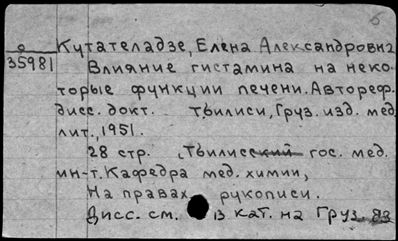 Кутателадзе, Елена Александровна
35981
Влияние гистамина на неко-
торые функции печени. Автореф.
дисс. докт. Тбилиси, Груз. изд. мед.
лит., 1951.
28 стр. Тбилисский гос. мед.
ин-т. Кафедра мед. химии,
На правах рукописи.
Дисс. см. в кат. на Груз. яз